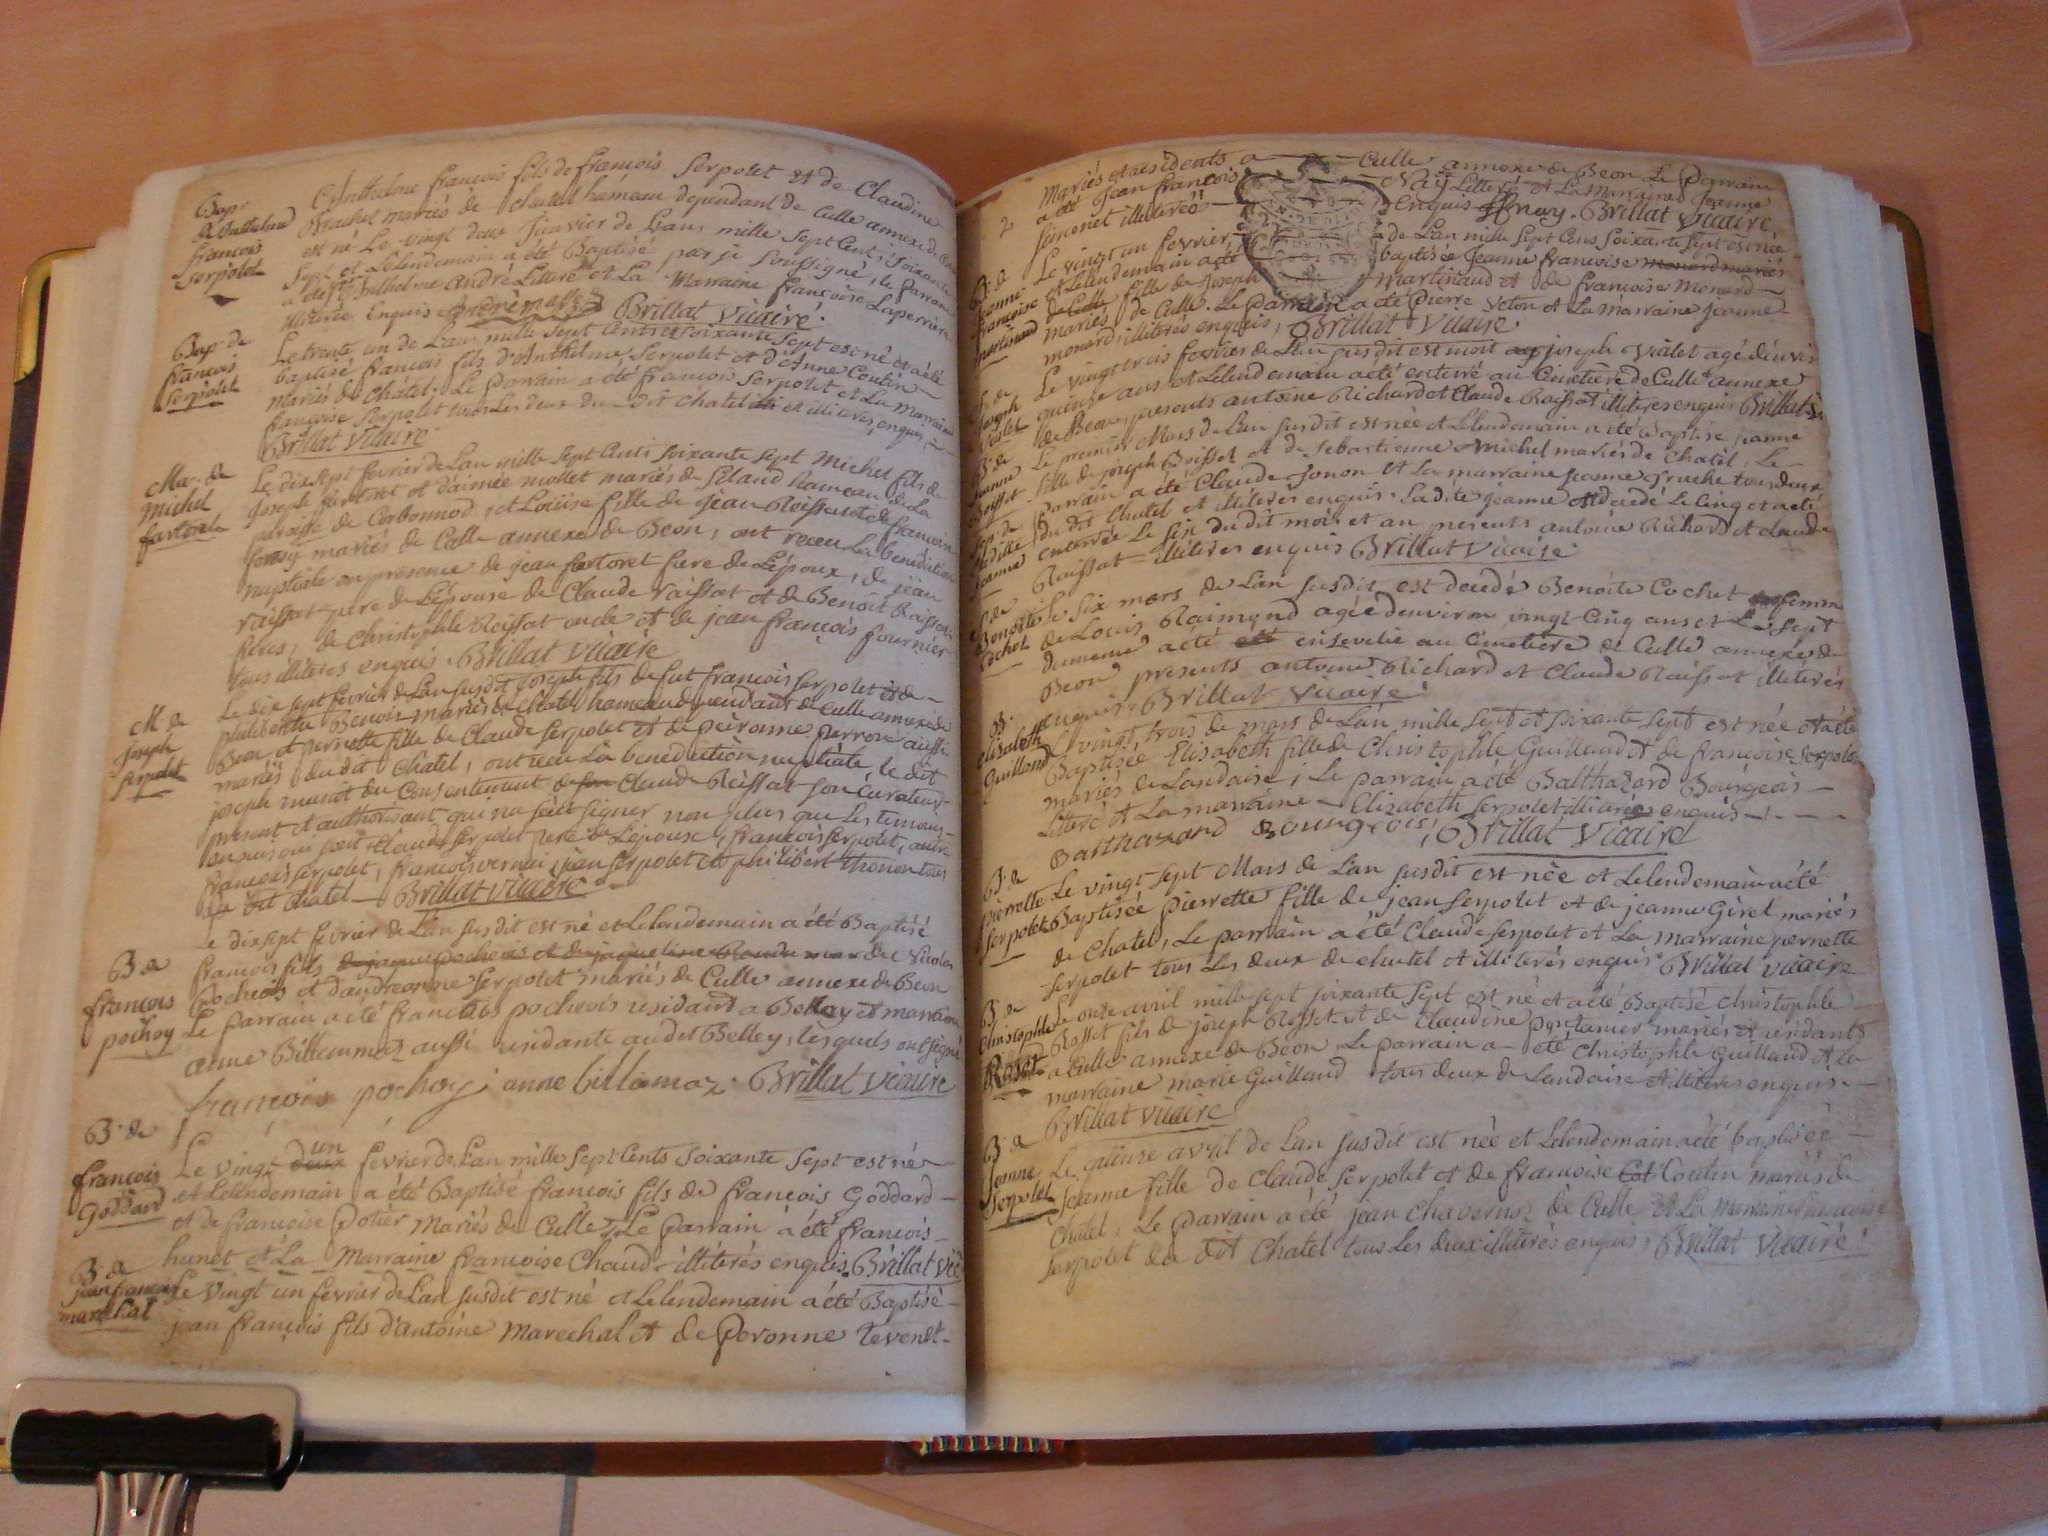 Bap.
Anthelme
françois
Serpolet
Anthelme françois fils de françois Serpolet et de Claudine
Brachet mariés de Chatel hameau dependant de Culle annexe de
est né Le vingt deux Janvier de L'an mille Sept Cents Soixante
Sept et Lelendemain a été Baptisé par je Soussigné, le parrain
a été Anthelme André Litteré et La Marraine françoise Laperrière
enquis Brillat Vicaire.
Bap. de
françois
Serpolet
Le trente un de L'an mille Sept Cents Soixante Sept est né et a été
baptisé françois fils d'Anthelme Serpolet et d'Anne Coutin
mariés de Châtel; Le parrain a été françois Serpolet et La Marraine
françoise Serpolet tous Les deux du dit Chatel et illiteres enquis,
Brillat Vicaire
Ma. de
michel
fartoret
Le dixsept fevrier de L'an mille Sept Cents Soixante Sept Michel fils de
Joseph fartoret et d'aimée mollet mariés de Silland hameau de La
paroisse de Corbonnod, et Louise fille de Jean Reissat et de françoise
mariés de Culle annexe de Beon, ont receu La benediction
nuptiale en presence de jean fartoret frere de L'époux, de jean
raissat pere de L'épouse de Claude raissat et de Benoit Raissat
freres, de Christophle Reissat oncle et de jean françois fournier
tous illiteres enquis. Brillat Vicaire
M. de
joseph
Serpolet
Le dix sept fevrier de L'an susdit joseph fils de feu françois Serpolet et de
philiberthe Benoit mariés de Chatel hameau dependant de Culle annexe de
Beon et pernette fille de Claude Serpolet et de peronne perron aussi
mariés du dit Châtel, ont receu La benediction nuptiale, le dit
joseph munit du Consentement de son Claude Reissat son Curateur
present et authorisant qui n'a sçeut signer non plus que Les temoins
enquis qui sont Claude Serpolet pere de L'epouse, françois Serpolet, autre
françois Serpolet, françois vernai, jean Serpolet et philibert thonon tous
du dit Chatel — Brillat Vicaire
B. de
françois
pochoy
Le dixsept fevrier de L'an susdit est né et Lelendemain a été Baptisé
françois fils de Nicolas
Pochois et d'andreanne Serpolet mariés de Culle annexe de Beon
Le parrain a été françois pochois residant a Belley et marraine
anne Billiemaz aussi residante au dit Belley, lesquels ont signé
françois pochoy; anne billiemaz. Brillat Vicaire
B. de
françois
Goddard
Le vingt deux un fevrier de L'an mille Sept Cents Soixante Sept est né
et Lelendemain a été Baptisé françois fils de françois Goddard
et de françoise Potier Mariés de Culle. Le parrain à été françois
hunot et La Marraine françoise Chaud illiterés enquis. Brillat Vic
B. de
jean françois
marechal
Le vingt un fevrier de L'an susdit est né et Lelendemain a été Baptisé
jean françois fils d'antoine Marechal et de Peronne Tevenet
2
Mariés et residents a Culle annexe de Beon Le parrain
a été jean françois Nay Litteré et La Marraine Jeanne
Simonet illiterée enquis JFnay. Brillat Vicaire
B. de
jeanne
françoise
martinaud
Le vingt un fevrier de L'an mille Sept Cens Soixante Sept est née
et Lelendemain a été baptisée Jeanne françoise
fille de Joseph Martinaud et de françoise Monard
Mariés de Culle. Le parrain a été Pierre Veton et La Marraine Jeanne
monard illiterés enquis, Brillat Vicaire.
S. de
joseph
Violet
Le vingt trois fevrier de L'an susdit est mort joseph Violet agé d'environ
quinse ans et Lelendemain a été enterré au Cimetière de Culle annexe
de Beon, presents antoine Richard et Claude Raissat illiteres enquis Brillat V
B. de
jeanne
Boisset
Le premier Mars de L'an susdit est née et Lelendemain a été Baptisée jeanne
fille de joseph Boisset et de Sebastienne Michel mariés de Chatel. Le
Parrain a été Claude Jonon et La marraine Jeanne Truche tous deux
du dit Chatel et illiterés enquis. La dite jeanne est decedé Le Cinq et a été
enterrée Le six du dit mois et an presents antoine Richard et Claude
Raissat illiteres enquis Brillat Vicaire.
Sep. de
Ladite
jeanne
S. de
Benoite
Cochet
Le Six mars de L'an susdit est decedé Benoite Cochet femme
de Louis Raimond agée d'environ vingt Cinq ans et Le Sept
du meme a été ensevelie au Cimetiere de Culle annexe de
Beon presents antoine Richard et Claude Raissat illiterés
enquis. Brillat Vicaire.
B.
Elizabeth
Guilland
Le vingt trois de mars de L'an mille Sept et Soixante Sept est née et a été
Baptisée Elisabeth fille de Christophle Guilland et de françoise Serpolet
mariés de Landaise; Le parrain a été Balthazard Bourgeois
litteré et La marraine Elizabeth Serpolet illiterée enquis
Balthazard Bourgeois, Brillat Vicaire
B. de
pierrette
Serpolet
Le vingt Sept Mars de L'an susdit est née et Lelendemain a été
Baptisée pierrette fille de jean Serpolet et de jeanne Giret mariés
de Chatel, Le parrain a été Claude Serpolet et La Marraine pernette
Serpolet tous Les deux de chatel et illiterés enquis Brillat Vicaire
B. de
Christophle
Rosset
Le onze avril mille sept soixante Sept est né et a été Baptisé Christophle
Rosset fils de joseph Rosset et de Claudine pontanier mariés et residants
a Culle annexe de Béon. Le parrain a été Christophle Guilland et La
marraine marie Guilland tous deux de Landaise et illiteres enquis
Brillat Vicaire
B. de
Jeanne
Serpolet
Le quinse avril de L'an susdit est née et Lelendemain a été baptisée
Jeanne fille de Claude Serpolet et de françoise Cot Coutin mariés de
Chatel, Le parrain a été jean Chavernoz de Culle et La Marraine françoise
Serpolet du dit Chatel tous Les deux illiterés enquis, Brillat Vicaire.